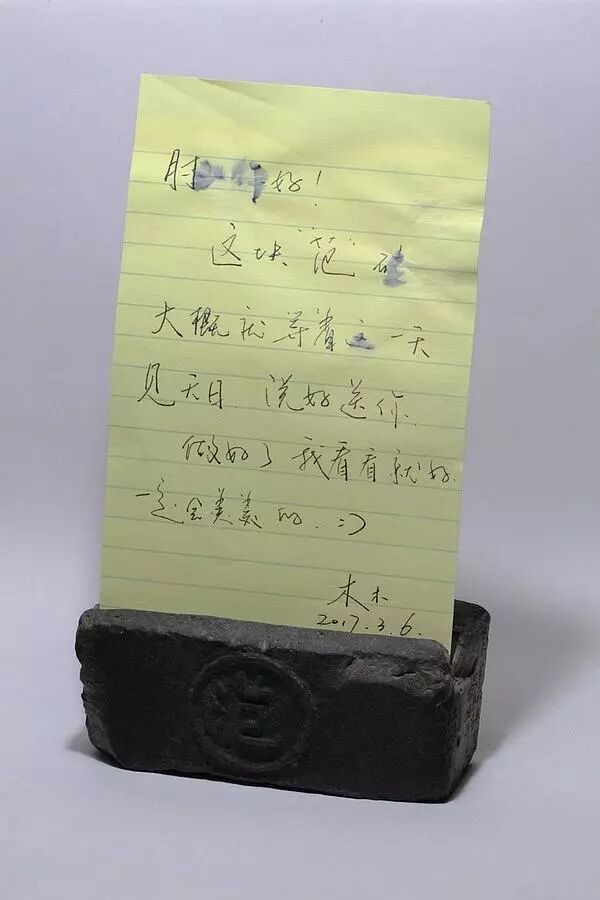 肘 好!
这块"范"砖
大概就等着这一天
见天日 说好送你.
做好了 我看看就好.
一定会美美的. :)
木木
2017.3.6.
范